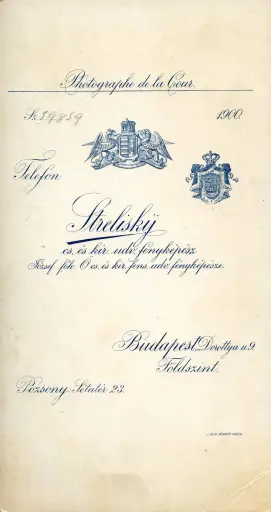 Photographe de la Cour.
Sz. 59859
1900.
Telefon
Strelisky
cs. és kir. udv. fényképész
József föh. Ö cs. és kir. fens. udv. fényképésze.
Budapest, Dorottya u. 9.
Földszint.
Pozsony Sétatér 23.